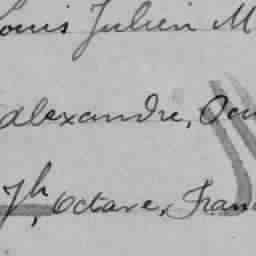 Louis Julien M
Alexandre, Oc
Th, Octave, Fran